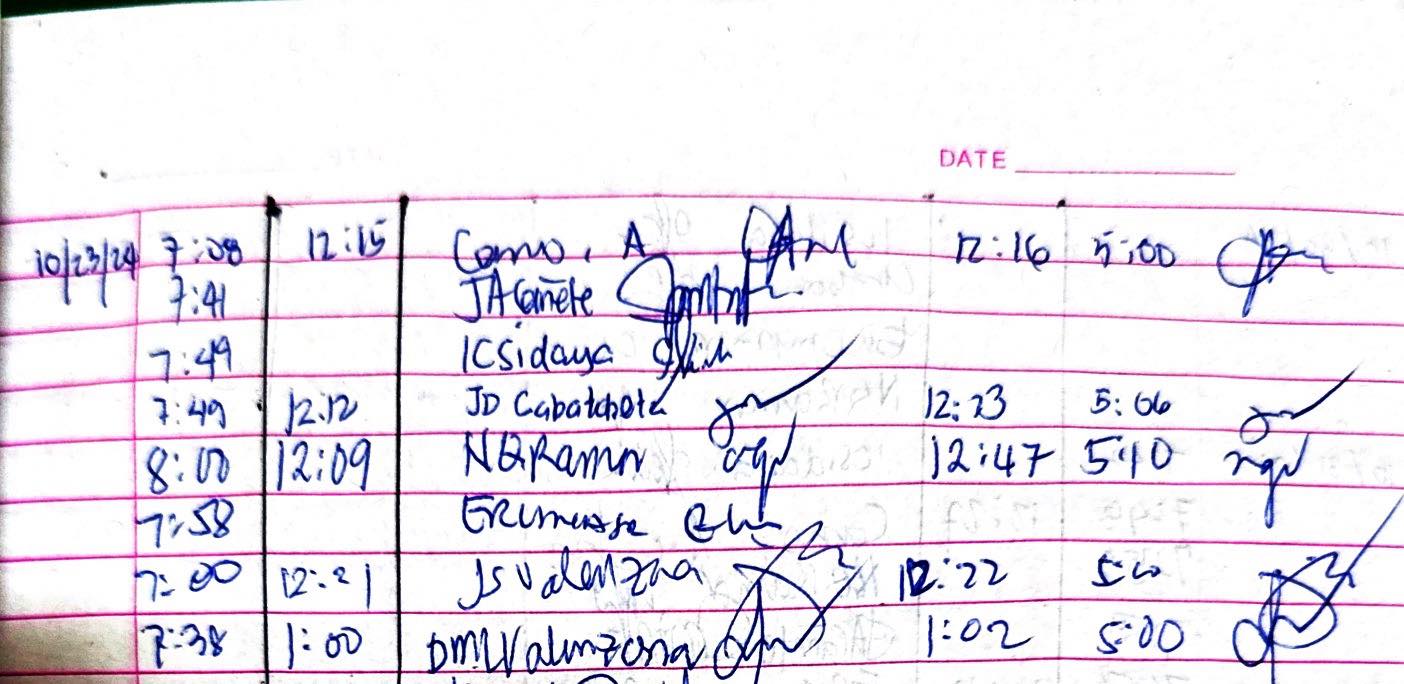 DATE
10/23/24 7:08 12:15 Camo, A 12:16 5:00
7:41 JA Cañete
7:49 ICSidaya
7:49 12:12 JD Cabatchete 12:23 5:06
8:00 12:09 NQRamor 12:47 5:10
7:58
7:00 12:21 JS Valenzona 12:22 5:00
7:38 1:00 DMValenzona 1:02 5:00